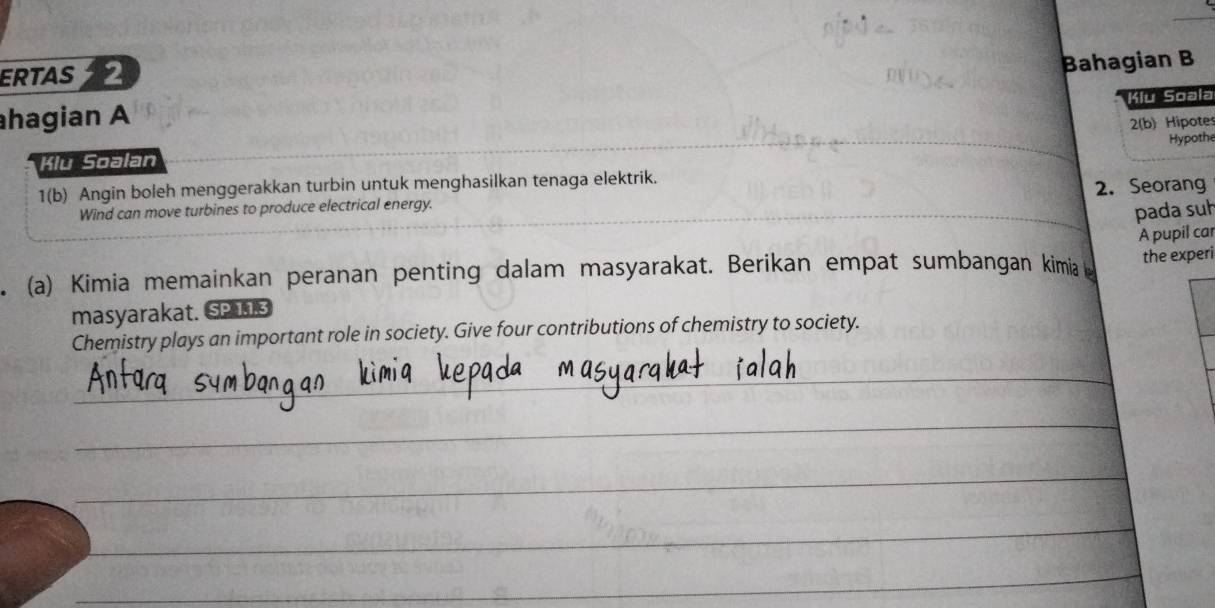 ERTAS 2
ahagian A
Klu Soalan
1(b) Angin boleh menggerakkan turbin untuk menghasilkan tenaga elektrik.
Wind can move turbines to produce electrical energy.
(a) Kimia memainkan peranan penting dalam masyarakat. Berikan empat sumbangan kimia
masyarakat. SP 1.1.3
Chemistry plays an important role in society. Give four contributions of chemistry to society.
Antara sumbangan kimia kepada masyarakat ialah
Bahagian B
Klu Soala
2(b) Hipotes
Hypothe
2. Seorang
pada suh
A pupil car
the experi